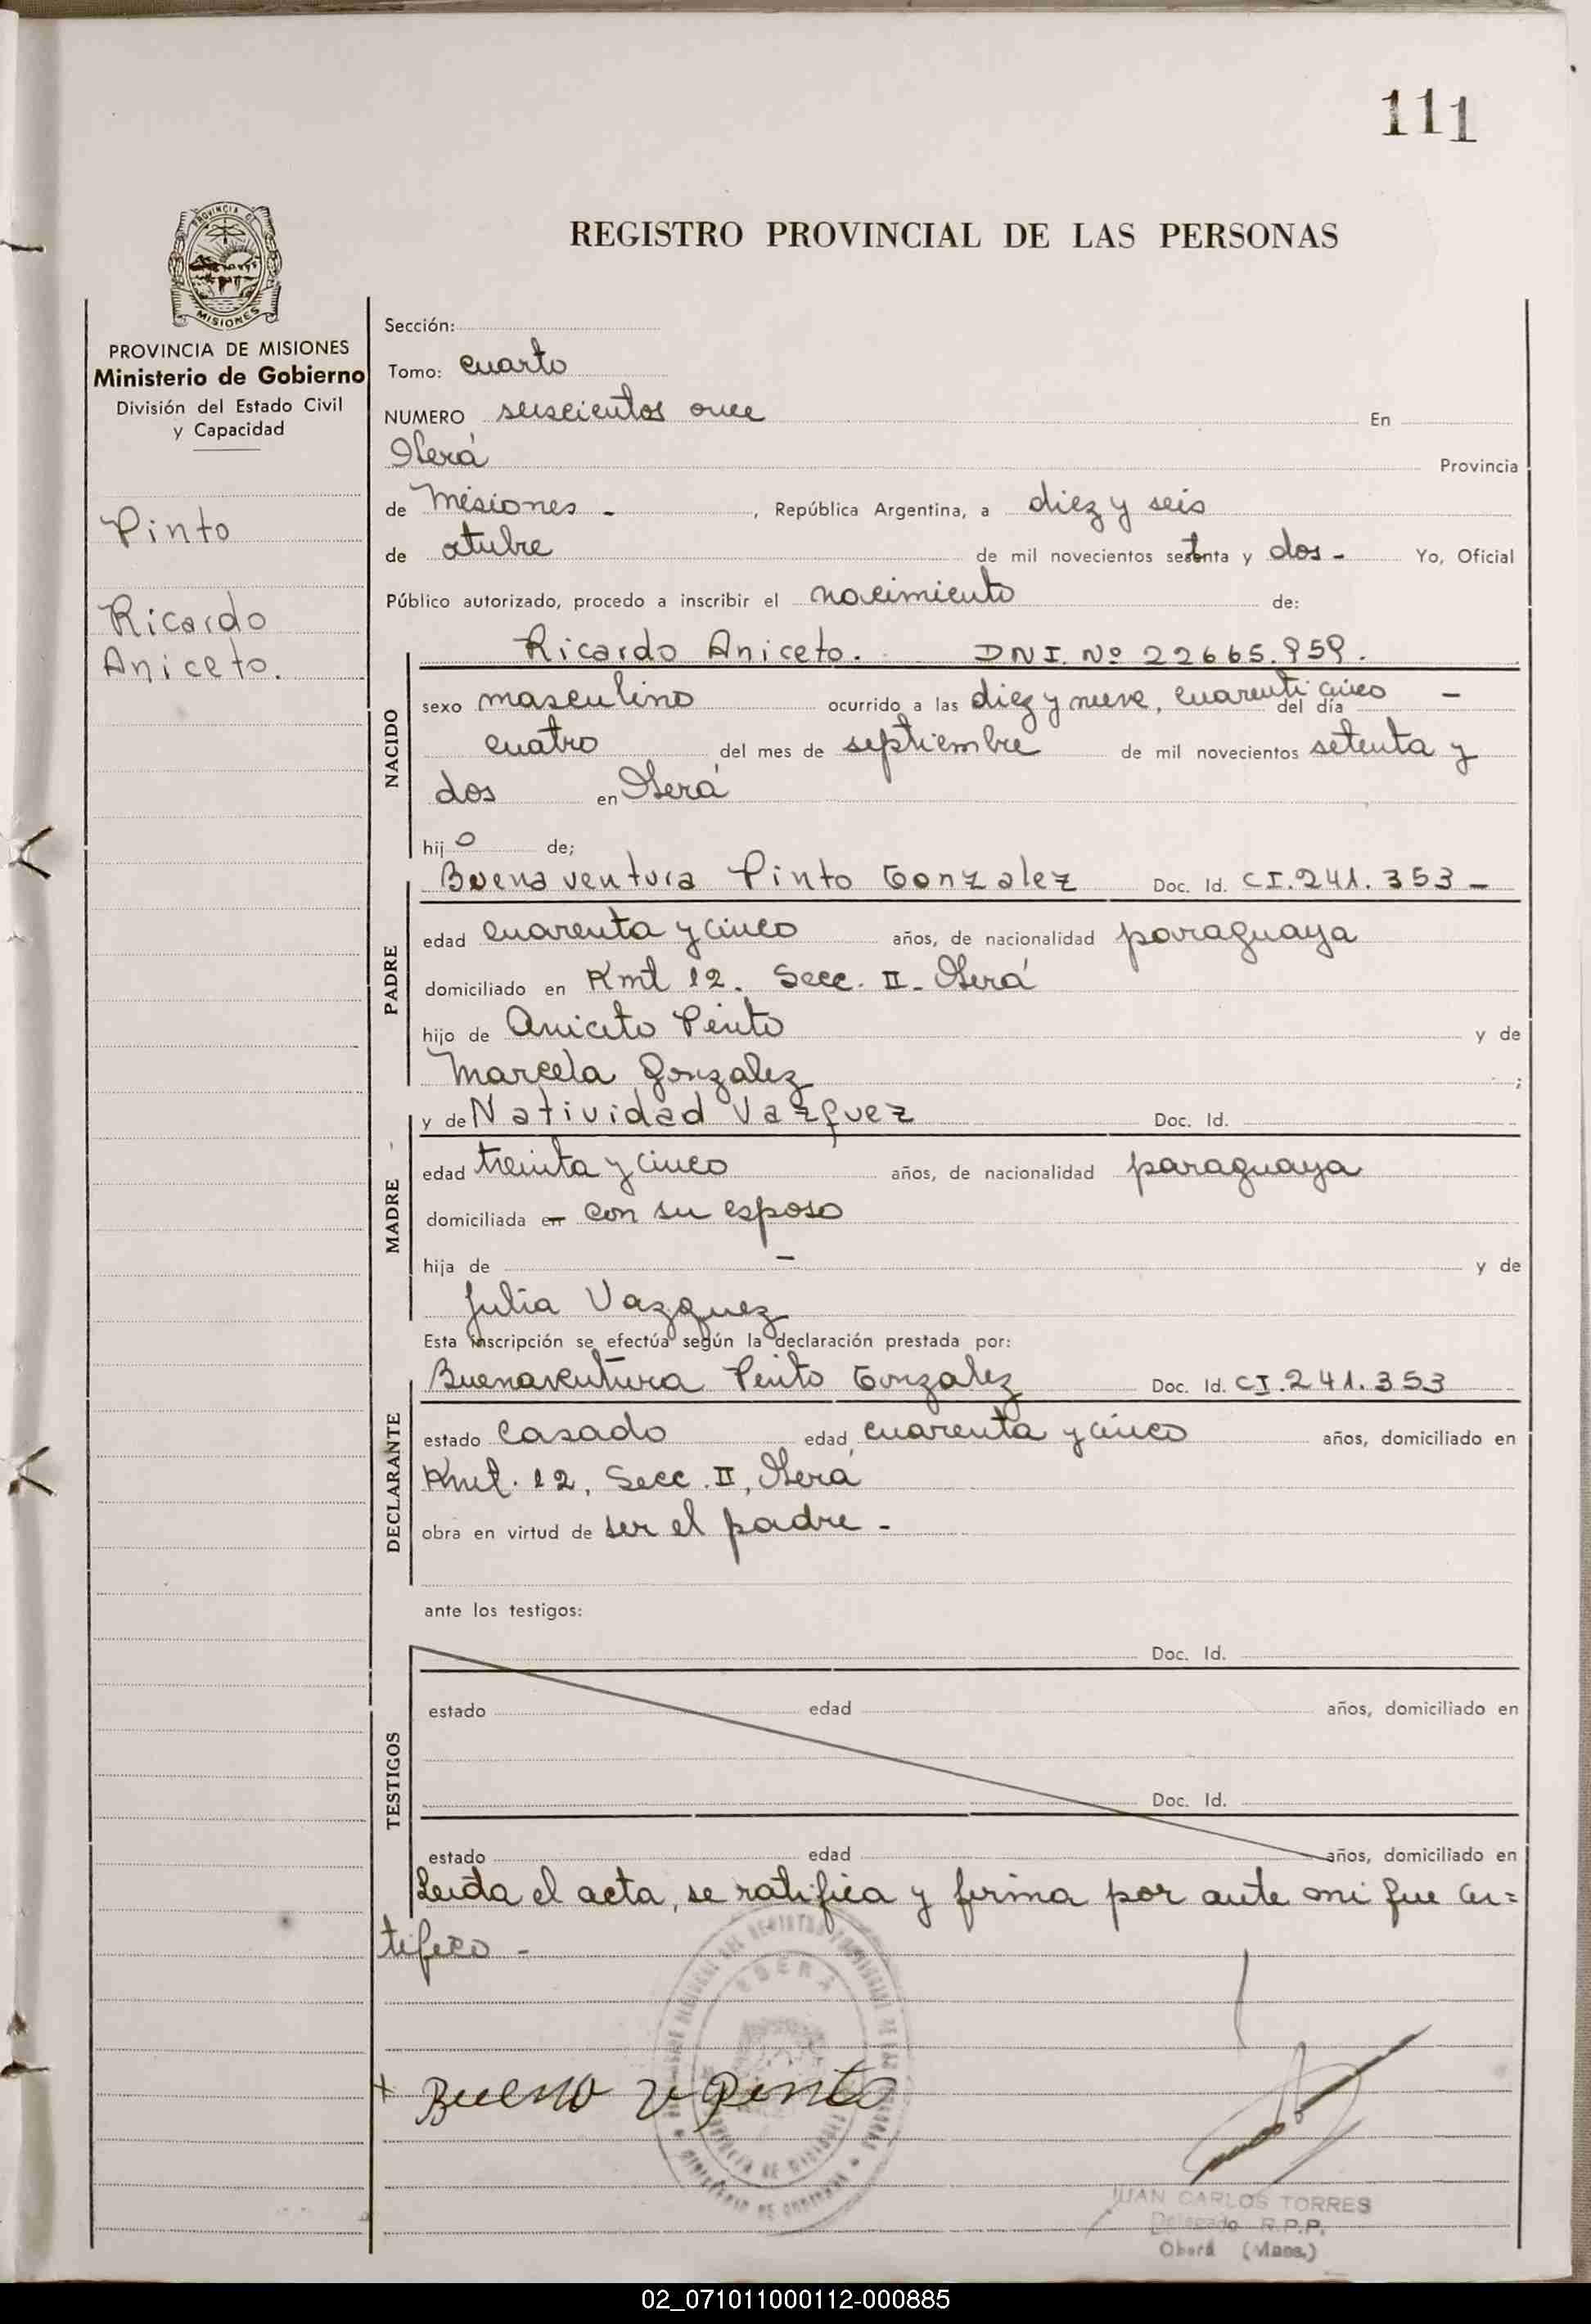 111
PROVINCIA DE
MISIONES
REGISTRO PROVINCIAL DE LAS PERSONAS
PROVINCIA DE MISIONES
Ministerio de Gobierno
División del Estado Civil
y Capacidad
Pinto
Ricardo
Aniceto.
Sección:
Tomo: cuarto
NUMERO seiscientos once En
Oberá Provincia
de Misiones - , República Argentina, a diez y seis
de otubre de mil novecientos setenta y dos - Yo, Oficial
Público autorizado, procedo a inscribir el nacimiento de:
NACIDO
Ricardo Aniceto. DNI. Nº 22665.959.
sexo masculino ocurrido a las diez y nueve, cuarenti cinco - del día
cuatro del mes de septiembre de mil novecientos setenta y
dos en Oberá
hijo de;
PADRE
Buenaventura Pinto Gonzalez Doc. Id. CI.241.353 -
edad cuarenta y cinco años, de nacionalidad paraguaya
domiciliado en Kmt 12. Secc. II - Oberá
hijo de Aniceto Pinto y de
Marcela Gonzalez ;
MADRE -
y de Natividad Vazquez Doc. Id.
edad treinta y cinco años, de nacionalidad paraguaya
domiciliada en con su esposo
hija de - y de
Julia Vazquez
Esta inscripción se efectúa según la declaración prestada por:
DECLARANTE
Buenaventura Pinto Gonzalez Doc. Id. CI.241.353
estado casado edad cuarenta y cinco años, domiciliado en
Kmt. 12, Secc. II, Oberá
obra en virtud de ser el padre -
ante los testigos:
TESTIGOS
Doc. Id.
estado edad años, domiciliado en
Doc. Id.
estado edad años, domiciliado en
Leida el acta, se ratifica y firma por ante mi que cer=
tifico -
OBERA
+ Bueno v Pinto
JUAN CARLOS TORRES
Delegado R.P.P.
Oberá (Mnes.)
02_071011000112-000885